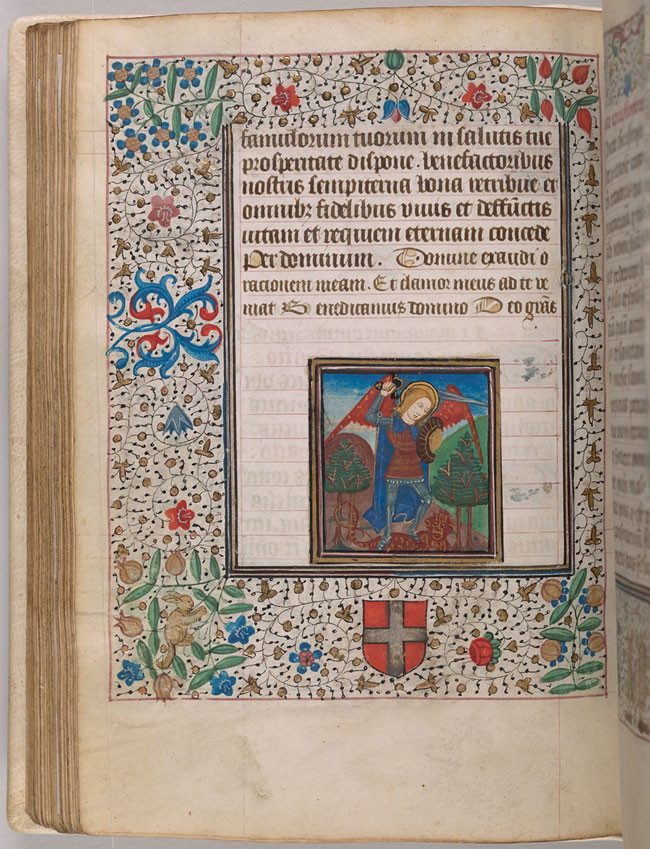 famulorum tuorum in salutis tue
prosperitate dispone. benefactoribus
nostris sempiterna bona retribue et
omnibꝫ fidelibus viuis et deffūctis
uitam et requiem eternam concede
Per dominum. Domine exaudi o
rationem meam. Et clamor meus ad te ve
niat Benedicamus domino Deo grās